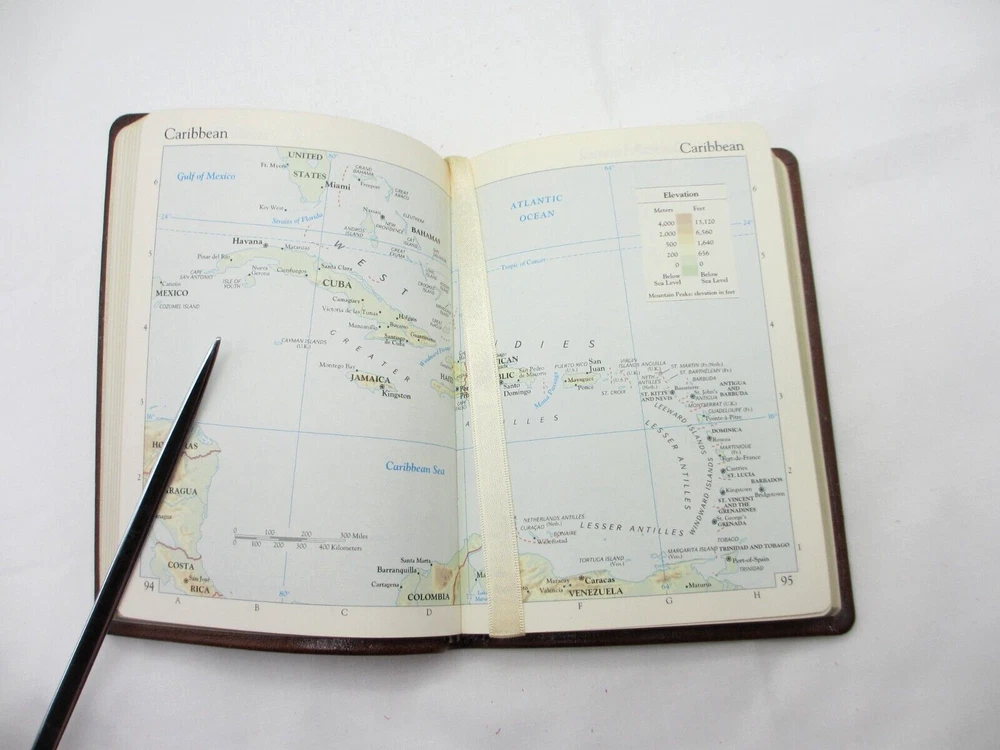 Caribbean
Caribbean
Gulf of Mexico
UNITED
STATES
Ft. Myers
Miami
Key West
Straits of Florida
GRAND
BAHAMA
Freeport
GREAT
ABACO
Nassau
NEW
PROVIDENCE
ELEUTHERA
ANDROS
ISLAND
CAT
ISLAND
BAHAMAS
GREAT
EXUMA
ATLANTIC
OCEAN
Tropic of Cancer
Elevation
Meters Feet
4,000 13,120
2,000 6,560
500 1,640
200 656
0 0
Below Below
Sea Level Sea Level
Mountain Peaks: elevation in feet
Havana
Matanzas
Pinar del Río
CAPE
SAN ANTONIO
Nueva
Gerona
ISLE OF
YOUTH
Cienfuegos
Santa Clara
CUBA
Camagüey
Victoria de las Tunas
Holguín
Manzanillo
Bayamo
Santiago
de Cuba
Guantánamo
MEXICO
COZUMEL ISLAND
CAYMAN ISLANDS
(U.K.)
WEST
INDIES
GREATER
Montego Bay
JAMAICA
Kingston
Santo
Domingo
San Pedro
de Macorís
Mona Passage
PUERTO RICO
(U.S.)
San
Juan
Mayagüez
Ponce
VIRGIN
ISLANDS
(U.S.)
(U.K.)
ST. CROIX
ANGUILLA
(U.K.)
ST. MARTIN (Fr./Neth.)
ST. BARTHÉLEMY (Fr.)
NETH.
ANTILLES
(Neth.)
BARBUDA
Basseterre
ST. KITTS
AND NEVIS
St. John's
ANTIGUA
ANTIGUA
AND
BARBUDA
MONTSERRAT (U.K.)
GUADELOUPE (Fr.)
Pointe-à-Pitre
LEEWARD ISLANDS
LESSER ANTILLES
WINDWARD ISLANDS
DOMINICA
Roseau
MARTINIQUE
(Fr.)
Fort-de-France
Castries
ST. LUCIA
BARBADOS
Bridgetown
Kingstown
ST. VINCENT
AND THE
GRENADINES
St. George's
GRENADA
Caribbean Sea
NETHERLANDS ANTILLES
(Neth.)
CURAÇAO
BONAIRE
Willemstad
LESSER ANTILLES
TORTUGA ISLAND
(Ven.)
MARGARITA ISLAND
(Ven.)
TOBAGO
TRINIDAD AND TOBAGO
Port-of-Spain
TRINIDAD
0 100 200 300 Miles
0 100 200 300 400 Kilometers
COSTA
RICA
San José
Santa Marta
Barranquilla
Cartagena
COLOMBIA
Maracay
Caracas
Valencia
VENEZUELA
Maturín
94
95
A B C D F G H